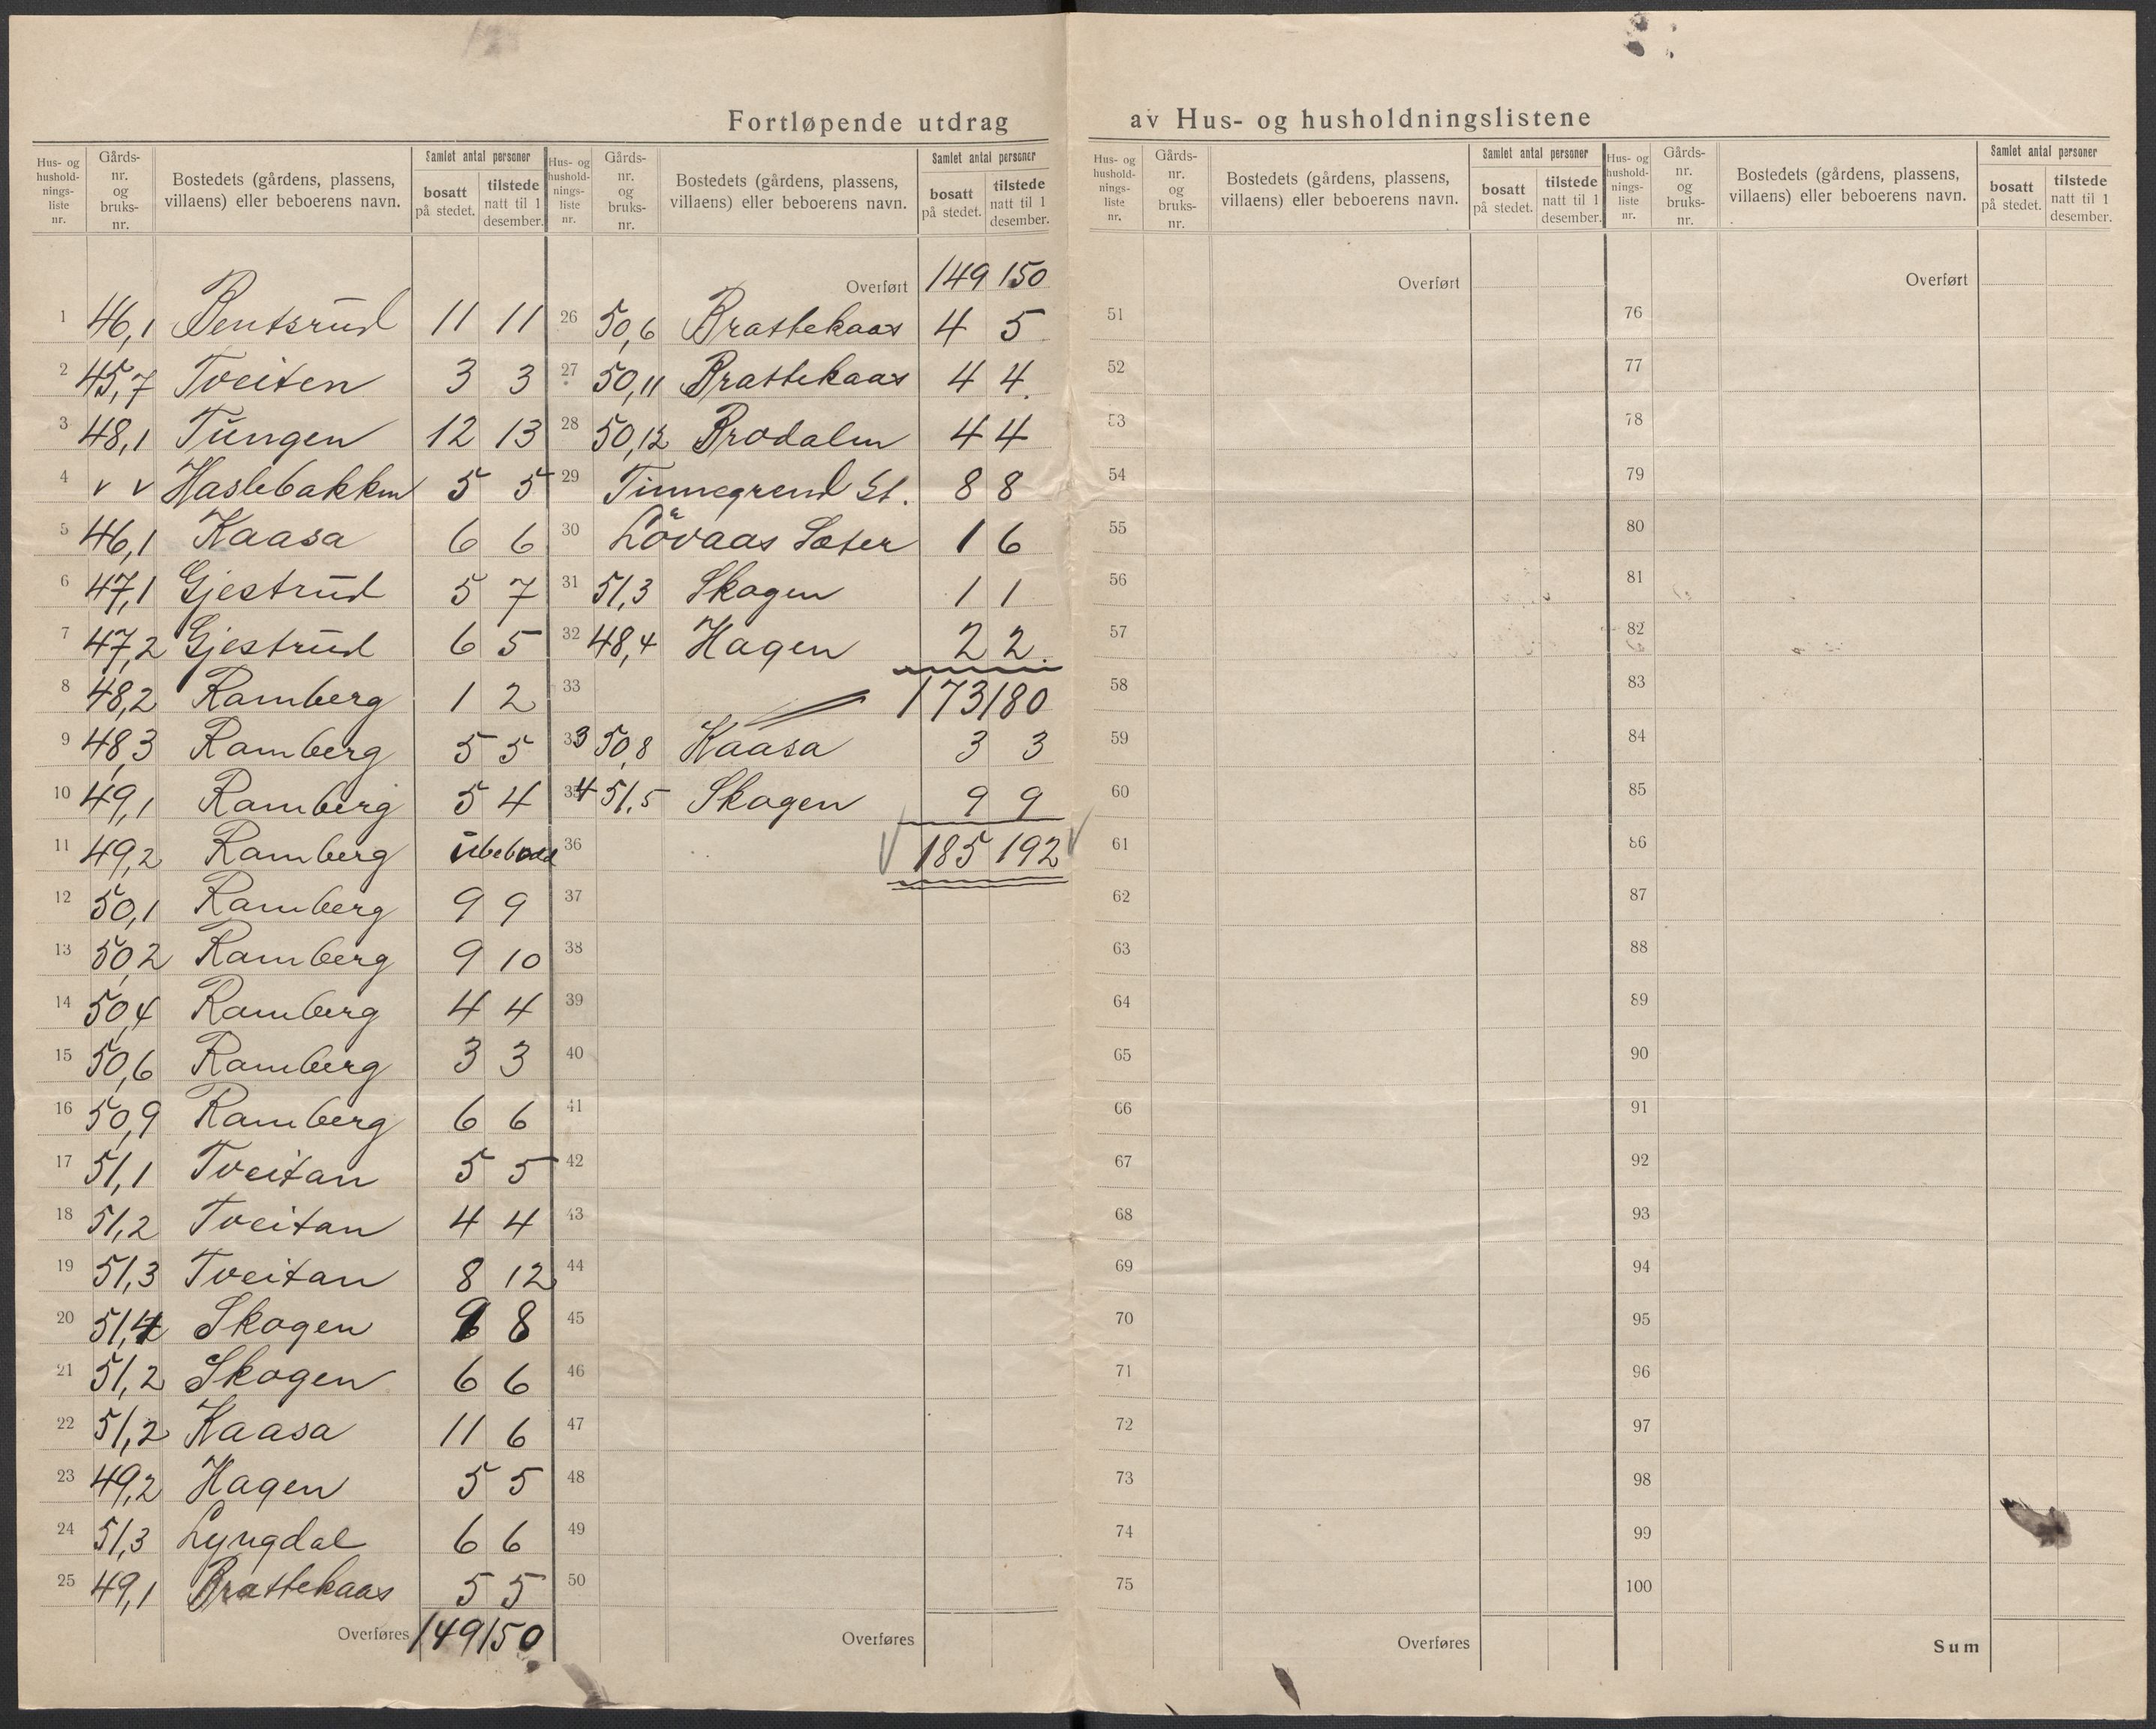 Fortløpende utdrag av Hus- og husholdningslistene
Hus- og husholdnings-liste nr. | Gårds-nr. og bruks-nr. | Bostedets (gårdens, plassens, villaens) eller beboerens navn. | Samlet antal personer | bosatt på stedet. | tilstede natt til 1 desember.
1 46,1 Bentsrud 11 11
2 45,7 Tveiten 3 3
3 48,1 Tungen 12 13
4 v v Haslebakken 5 5
5 46,1 Kaasa 6 6
6 47,1 Gjestrud 5 7
7 47,2 Gjestrud 6 5
8 48,2 Ramberg 1 2
9 48,3 Ramberg 5 5
10 49,1 Ramberg 5 4
11 49,2 Ramberg ubebodd
12 50,1 Ramberg 9 9
13 50,2 Ramberg 9 10
14 50,4 Ramberg 4 4
15 50,6 Ramberg 3 3
16 50,9 Ramberg 6 6
17 51,1 Tveitan 5 5
18 51,2 Tveitan 4 4
19 51,3 Tveitan 8 12
20 51,4 Skogen 8
21 51,2 Skogen 6 6
22 51,2 Kaasa 11 6
23 49,2 Hagen 5 5
24 51,3 Lyngdal 6 6
25 49,1 Brattekaas 5 5
Overføres 149 150
Hus- og husholdnings-liste nr. | Gårds-nr. og bruks-nr. | Bostedets (gårdens, plassens, villaens) eller beboerens navn. | Samlet antal personer | bosatt på stedet. | tilstede natt til 1 desember.
Overført 149 150
26 50,6 Brattekaas 4 5
27 50,11 Brattekaas 4 4
28 50,12 Brodalen 4 4
29 Tinnegrend St. 8 8
30 Lövaas Sæter 1 6
31 51,3 Skogen 1 1
32 48,4 Hagen 2 2
33 173 180
33 50,8 Kaasa 3 3
34 51,5 Skogen 9 9
36 185 192
37
38
39
40
41
42
43
44
45
46
47
48
49
50
Overføres
Hus- og husholdnings-liste nr. | Gårds-nr. og bruks-nr. | Bostedets (gårdens, plassens, villaens) eller beboerens navn. | Samlet antal personer | bosatt på stedet. | tilstede natt til 1 desember.
Overført
51
52
53
54
55
56
57
58
59
60
61
62
63
64
65
66
67
68
69
70
71
72
73
74
75
Overføres
Hus- og husholdnings-liste nr. | Gårds-nr. og bruks-nr. | Bostedets (gårdens, plassens, villaens) eller beboerens navn. | Samlet antal personer | bosatt på stedet. | tilstede natt til 1 desember.
Overført
76
77
78
79
80
81
82
83
84
85
86
87
88
89
90
91
92
93
94
95
96
97
98
99
100
Sum